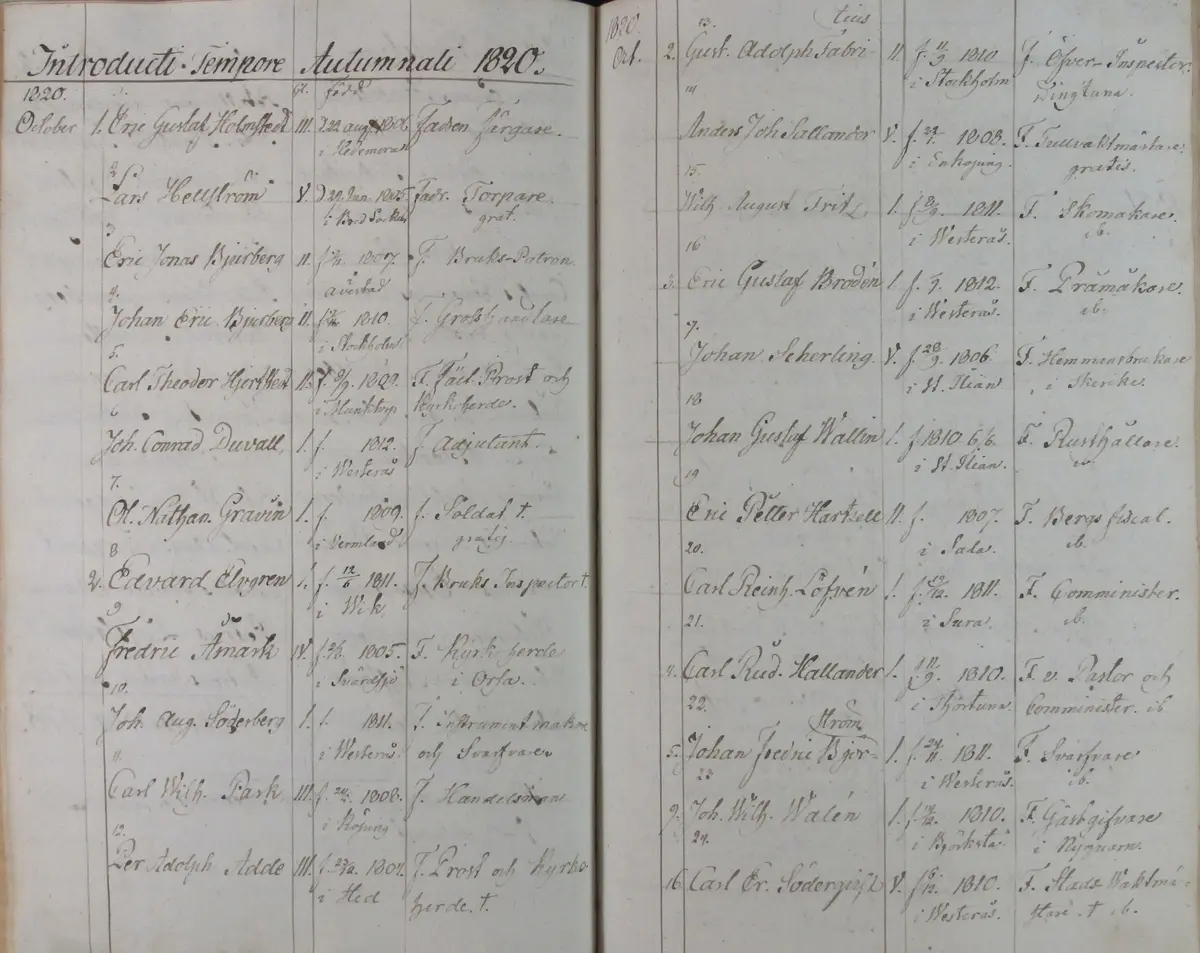 Introducti Tempore Autumnali 1820.
1820. Cl. född
October 1. Eric Gustaf Holmstedt III. 22 aug. 1806 Fadren Färgare.
i Hedemora
2.
Lars Hellström V. Jan. 1805. Fadr. Torpare.
grat.
3
Eric Jonas Bjurberg II. f. 1807. F. Bruks-Patron.
avestad
4.
Johan Eric Bjurberg II. f. 1810. F. Grosshandlare
i Stockholm
5.
Carl Theodor f. F. Fält Prost och
Kyrkoherde.
6
Joh. Conrad Duvall. 1. f. 1812. F. Adjutant.
i Westerås
7.
Ol. Nathan. Gravin 1. f. 1809. f. Soldat t.
i Vermland gratis.
8
2. Edvard Elvgren 1. f. 12/6 1811. F. Bruks Inspector t.
i Wik
9
Fredric Åmark IV. f. 1805. F. Kyrkoherde
i Svärdsjö i Orsa.
10.
Joh. Aug. Söderberg 1. f. 1811. F. Instrumentmakare
i Westerås. och Svarfvare
11.
Carl Wilh. Park III. f. 1808. F. Handelsman
i Köping
12.
Per Adolph Adde III. f. 1804. F. Prost och Kyrko
i Hed herde. t.
1820. 13. tius
Oct. 2. Gust. Adolph Fabri- II. f. 11/9 1810 F. Öfver-Inspector
i Stockholm Dingtuna.
14
Anders Joh. Sallander V. f. 1808. F. Tullvaktmästare
i Enköping. gratis.
15.
Wilh. August Fritz 1. f. 1811. F. Skomakare.
i Westerås. ib.
16
3. Eric Gustaf Brodén 1. f. 1812. F. Pråmåkare.
i Westerås. ib.
17.
Johan Scherling. V. f. 28/9 1806. F. Hemmansbrukare
i St. Ilian i Skerike.
18
Johan Gustaf Wallin 1. f. 1810 6/6. F. Rusthållare.
i St. Ilian.
19
Eric Petter Hartsell II. f. 1807. F. Bergsfiscal.
i Sala. ib.
20.
Carl Reinh. Löfvén 1. f. 1811. F. Comminister.
i Sura. ib.
21.
4. Carl Rud. Hallander 1. f. 11/9 1810. F. v. Pastor och
i Fjörtuna. Comminister. ib
22. ström
5. Johan Fredric Björ- 1. f. 24/11 1811. F. Svarfvare
i Westerås. ib.
23
9. Joh. Wilh. Walén 1. f. 1810. F. Gästgifvare
i Björksta i Nyqvarn.
24.
16. Carl Er. V. f. 6/12 1810. F. Stads Waktmä-
i Westerås. stare. t ib.